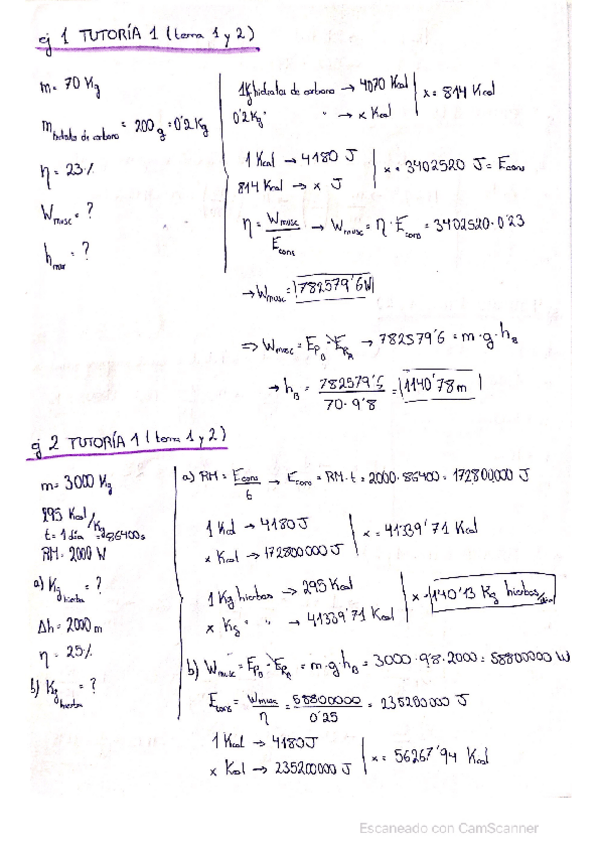 ej 1 TUTORÍA 1 (tema 1 y 2)
m = 70 Kg
m hidratos de carbono = 200 g = 0'2 Kg
η = 23 %
W musc = ?
h max = ?
1 Kg hidratos de carbono → 4070 Kcal
0'2 Kg " → x Kcal
x = 814 Kcal
1 Kcal → 4180 J
814 Kcal → x J
x = 3402520 J = E cons
η = W musc / E cons → W musc = η · E cons = 3402520 · 0'23
→ W musc = 782579'6 W
⇒ W musc = E p B - E p A → 782579'6 = m · g · h B
→ h B = 782579'6 / 70 · 9'8 = 1140'78 m
ej 2 TUTORÍA 1 (tema 1 y 2)
m = 3000 Kg
295 Kcal/Kg
t = 1 día = 86400 s
RM = 2000 W
a) Kg hierba = ?
Δh = 2000 m
η = 25 %
b) Kg hierba = ?
a) RM = E cons / t → E cons = RM · t = 2000 · 86400 = 172800000 J
1 Kcal → 4180 J
x Kcal → 172800000 J
x = 41339'71 Kcal
1 Kg hierbas → 295 Kcal
x Kg " " → 41339'71 Kcal
x = 140'13 Kg hierbas/día
b) W musc = E p B - E p A = m · g · h B = 3000 · 9'8 · 2000 = 58800000 W
E cons = W musc / η = 58800000 / 0'25 = 235200000 J
1 Kcal → 4180 J
x Kcal → 235200000 J
x = 56267'94 Kcal
Escaneado con CamScanner